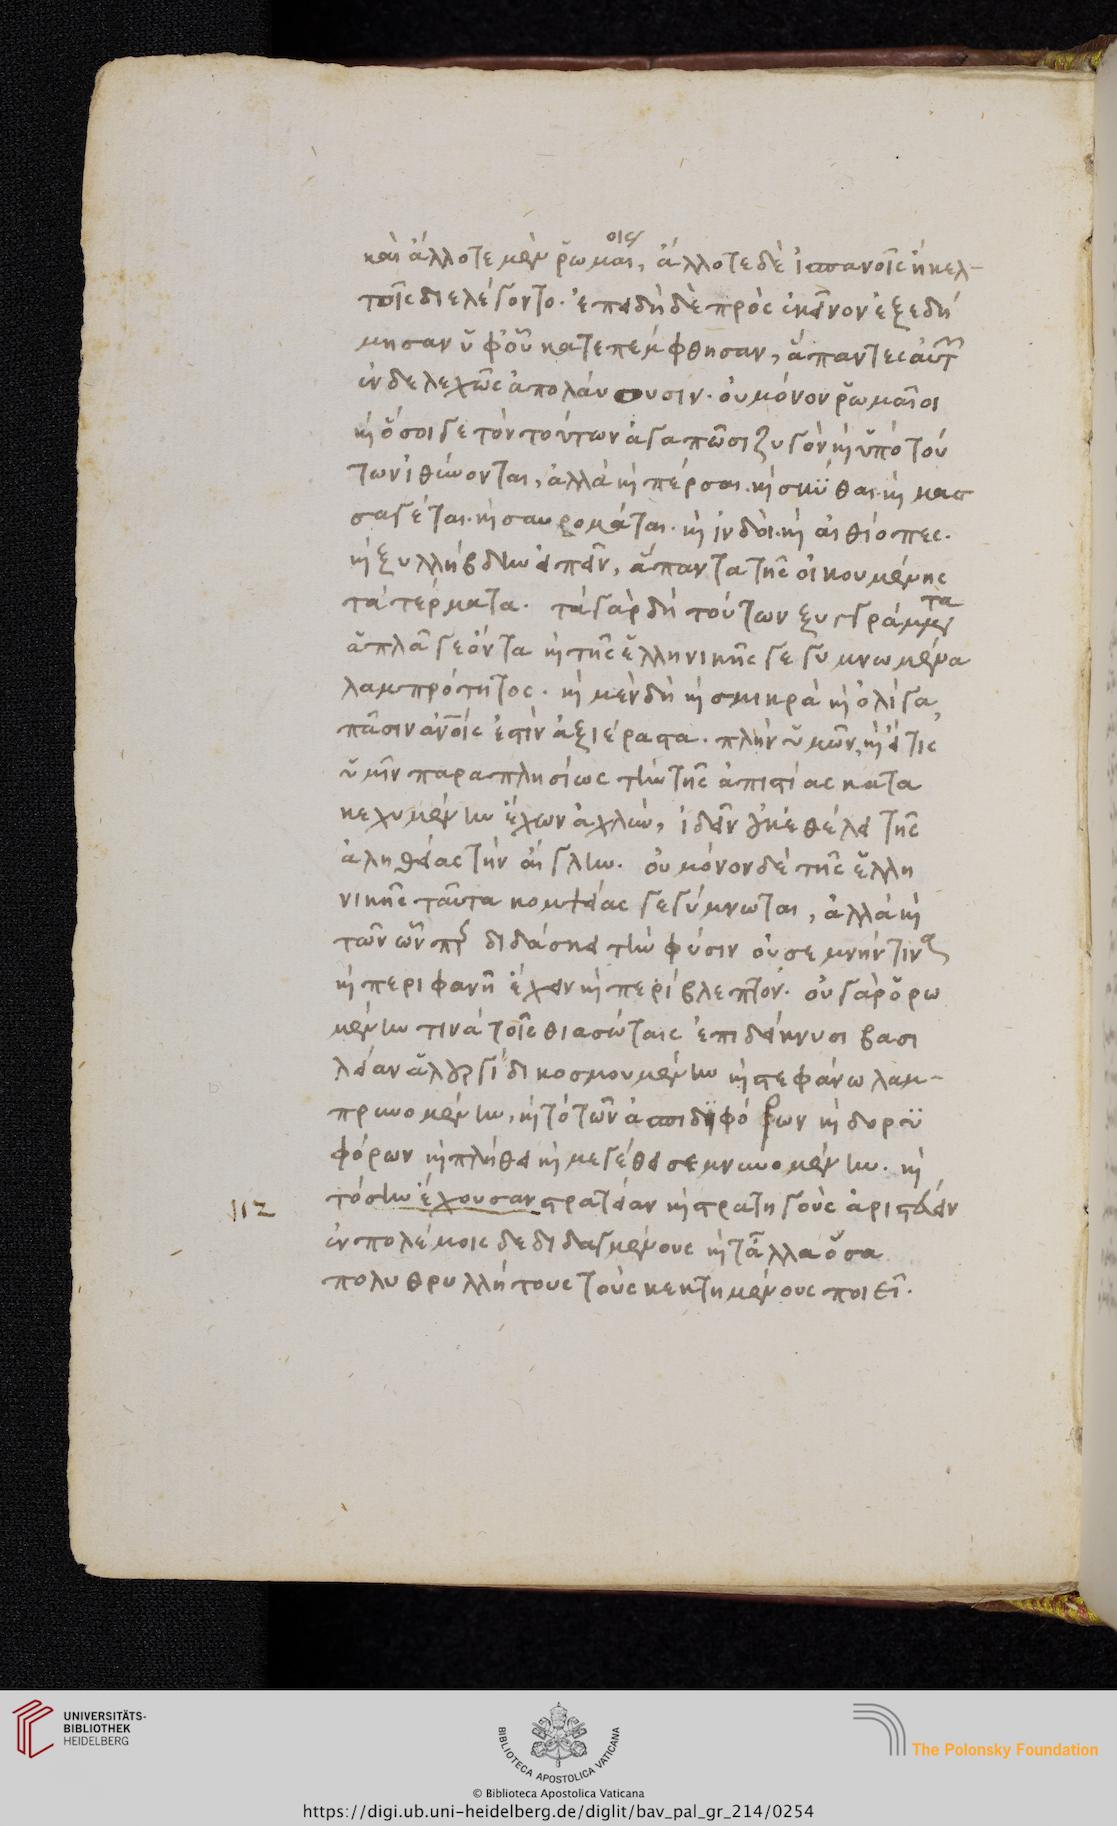 καὶ ἄλλοτε μὲν ῥωμαίοις, ἄλλοτε δὲ ἱσπανοῖς ἢ κελ-
τοῖς διελέγοντο. ἐπειδὴ δὲ πρὸς ἐκεῖνον ἐξεδή
μησαν ὑφ' οὗ κατεπέμφθησαν, ἅπαντες αὐτῶν
ἐνδελεχῶς ἀπολάυουσιν. οὐ μόνον ῥωμαῖοι
καὶ ὅσοι γε τὸν τούτων ἀγαπῶσι ζυγὸν καὶ ὑπὸ τού
των ἰθύνονται, ἀλλὰ καὶ πέρσαι. καὶ σκύθαι. καὶ μασ
σαγέται. καὶ σαυρομάται. καὶ ἰνδοὶ. καὶ αἰθίοπες.
καὶ ξυλλήβδην εἰπεῖν, ἅπαντα τῆς οἰκουμένης
τὰ τέρματα. τὰ γὰρ δὴ τούτων ξυγγράμματα
ἁπλᾶ γε ὄντα καὶ τῆς ἑλληνικῆς γεγυμνωμένα
λαμπρότητος. καὶ μὲν δὴ καὶ σμικρὰ καὶ ὀλίγα,
πᾶσιν ἀνοις ἐστὶν ἀξιέραστα. πλὴν ὑμῶν, καὶ εἴ τις
ὑμῖν παραπλησίως τὴν τῆς ἀπιστίας κατα
κεχυμένην ἔχων ἀχλὺν, ἰδεῖν οὐκ ἐθέλει τῆς
ἀληθείας τὴν αἴγλην. οὐ μόνον δὲ τῆς ἑλλη
νικῆς ταῦτα κομψείας γεγύμνωται, ἀλλὰ καὶ
τῶν ὧν περ διδάσκει τὴν φύσιν οὐ σεμνήν τινα
καὶ περιφανῆ ἔχειν καὶ περίβλεπτον. οὐ γὰρ ὁρω
μένην τινὰ τοῖς θιασώταις ἐπιδείκνυσι βασι
λείαν ἁλουργίδι κοσμουμένην καὶ στεφάνω λαμ-
πρυνομένην, καὶ τὸ τῶν ἀσπιδηφόρων καὶ δορυ
φόρων καὶ πλήθει καὶ μεγέθει σεμνυνομένην. καὶ
τόσην ἔχουσαν στρατείαν καὶ στρατηγοὺς ἀριστεύειν
112
ἐν πολέμοις δεδιδαγμένους καὶ τἄλλα ὅσα
πολυθρυλλήτους τοὺς κεκτημένους ποιεῖ.
UNIVERSITÄTS-
BIBLIOTHEK
HEIDELBERG
BIBLIOTECA APOSTOLICA VATICANA
The Polonsky Foundation
© Biblioteca Apostolica Vaticana
https://digi.ub.uni-heidelberg.de/diglit/bav_pal_gr_214/0254